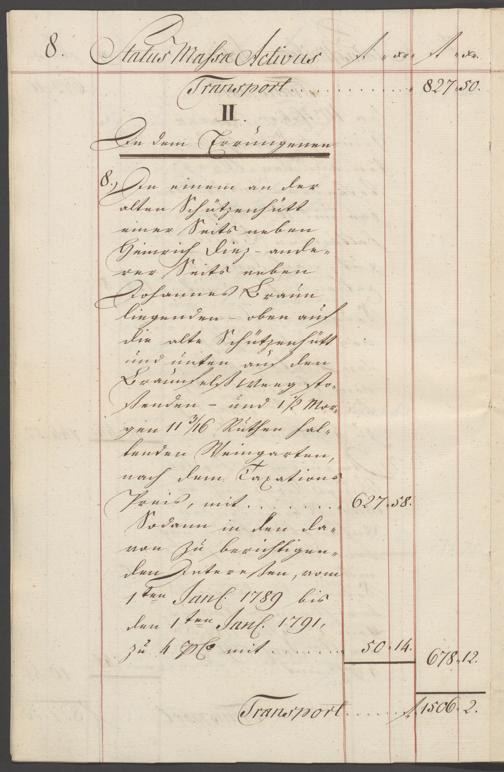 8. Status Massæ Activus fl xr. fl xr.
Transport . . . . . . . . . 827. 50.
II.
In dem Errungenen
8., In einem an der
alten Schützenhütt
einer Seits neben
Henrich Diez - ande-
rer Seits neben
Johannes Braun
liegenden - oben auf
die alte Schützenhütt
und unten auf den
Braunfelß Weeg sto-
ßenden - und 1 1/2 Mor-
gen 11 3/16 Ruthen hal-
tenden Weingarten,
nach dem Taxations
Preis, mit . . . . . . . 627. 58.
Sodann in den da-
von zu berichtigen-
den Interessen, vom
1ten Jan. 1789 bis
den 1ten Jan. 1791,
zu 4 pC mit . . . . . . . 50. 14. 678. 12.
Transport . . . . . . fl. 1506. 2.